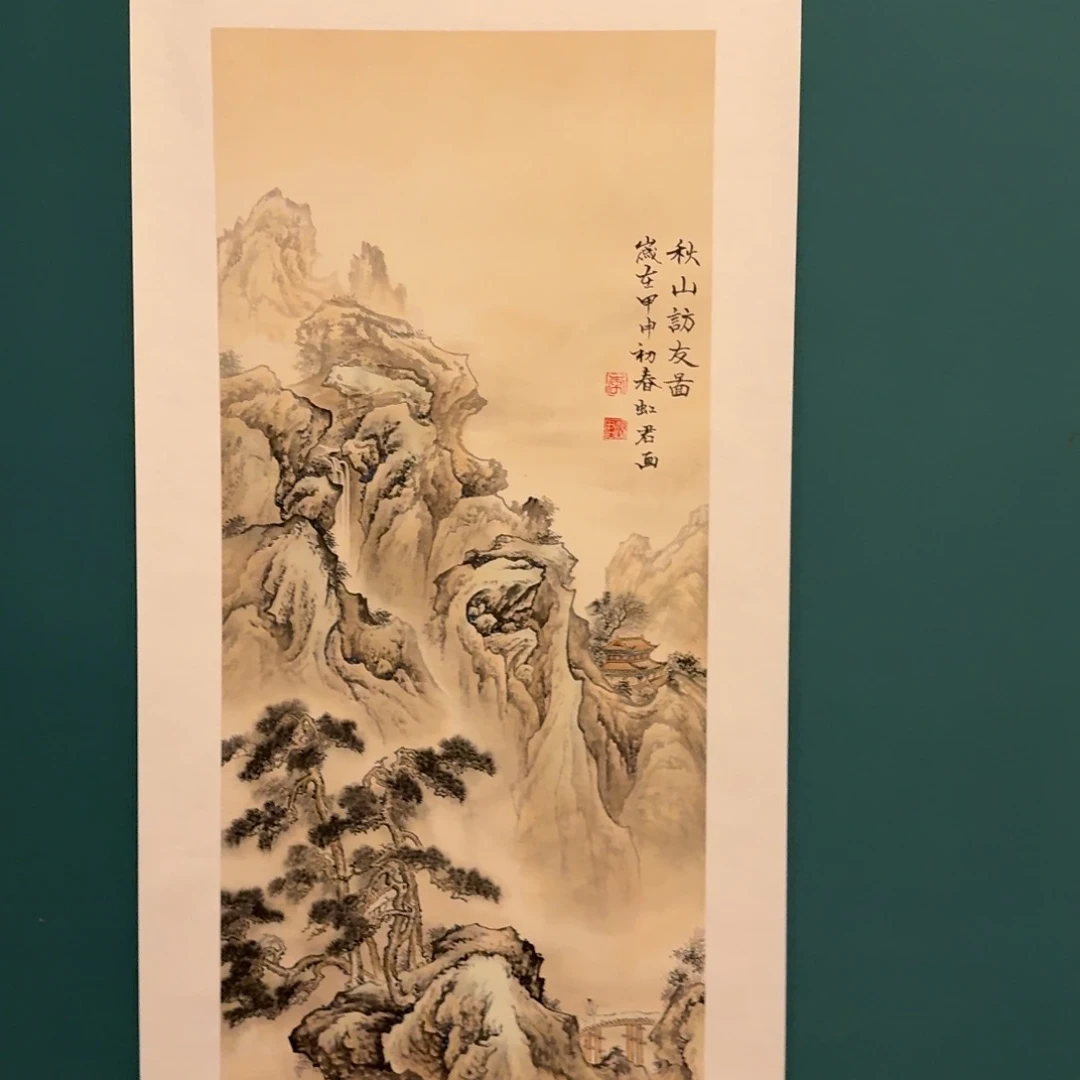 秋山訪友啚
歲在甲申初春虹君画